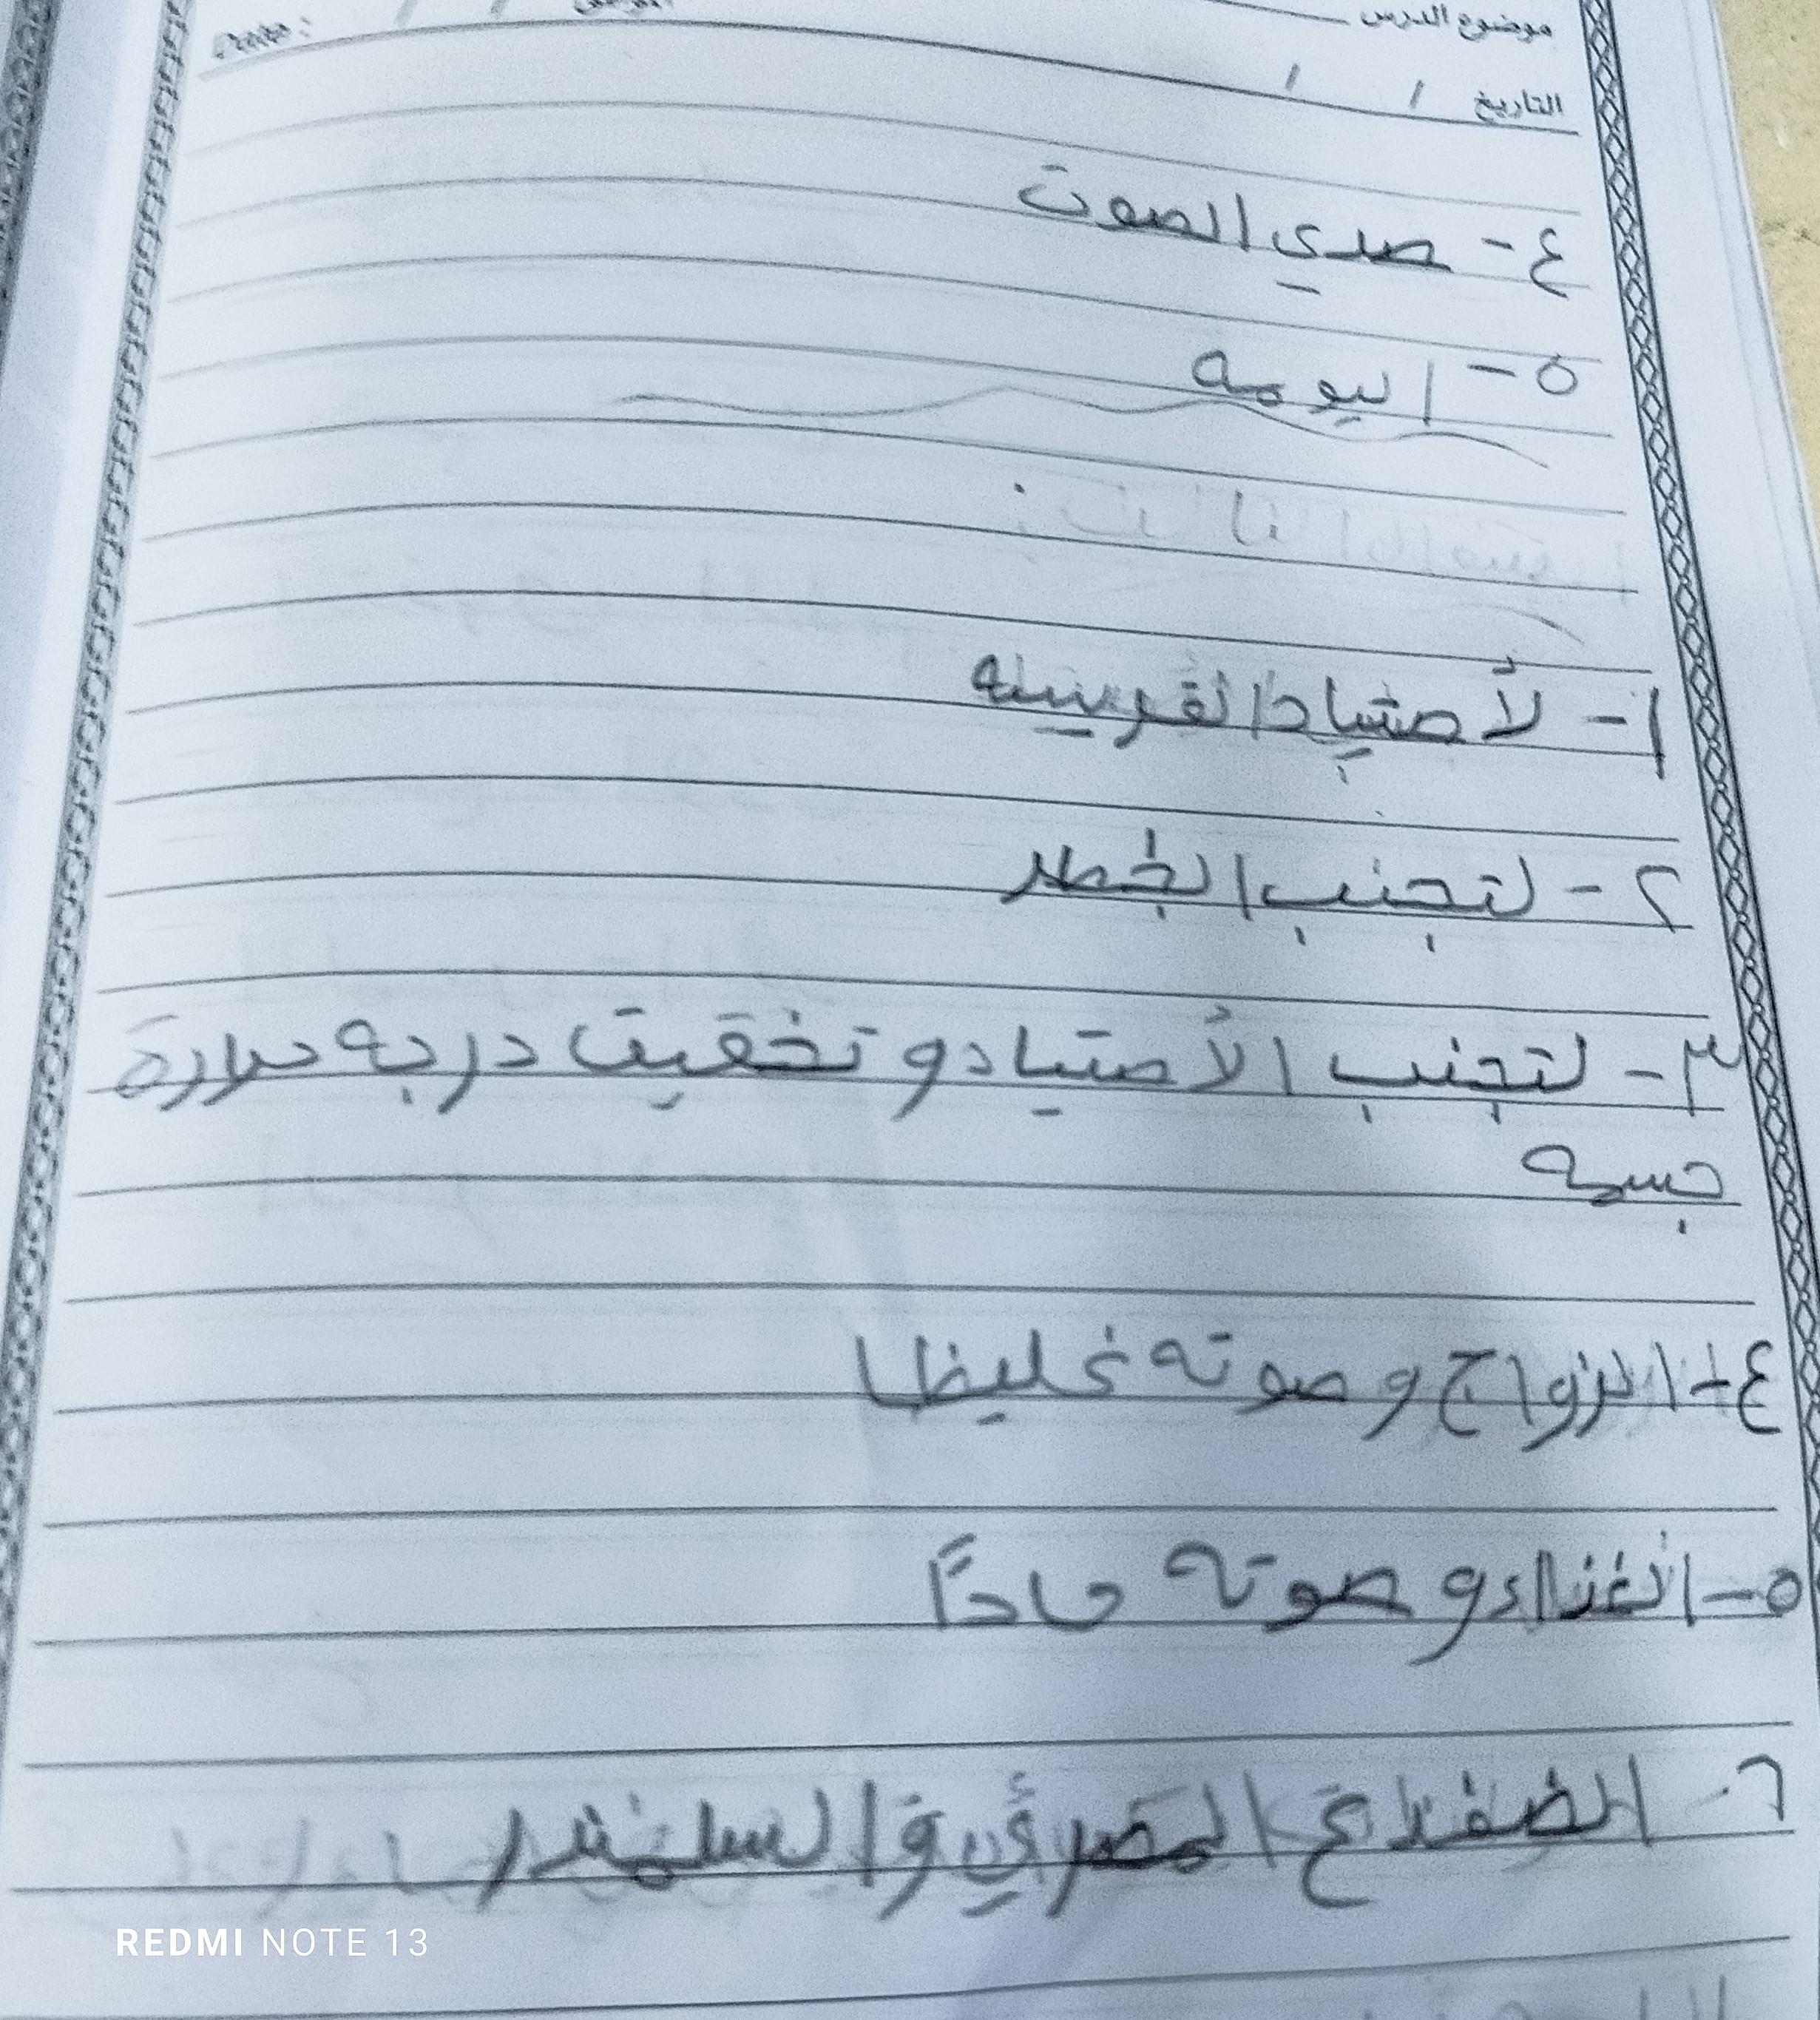 موضوع الدرس
التاريخ / /
٤- صدي الصوت
٥- اليومه
١- لأصتياد الفريسه
٢- لتجنب الخطر
٣- لتجنب الأصتياد و تخقيق درجه حرارة
جسمه
٤- الزواج و صوته غليظا
٥- الغذاء و صوته حاداً
٦- الضفدع المصري و السلمندر
REDMI NOTE 13